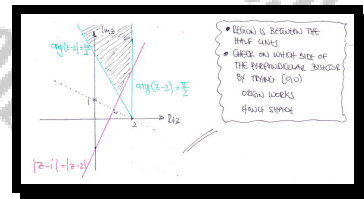 Im z
arg(z-2)=2π/3
arg(z-2)=π/2
i
2
Re z
|z-i|=|z-2|
• REGION IS BETWEEN THE
HALF LINES
• CHECK ON WHICH SIDE OF
THE PERPENDICULAR BISECTOR
BY TRYING (0,0)
ORIGIN WORKS
HENCE SHADE